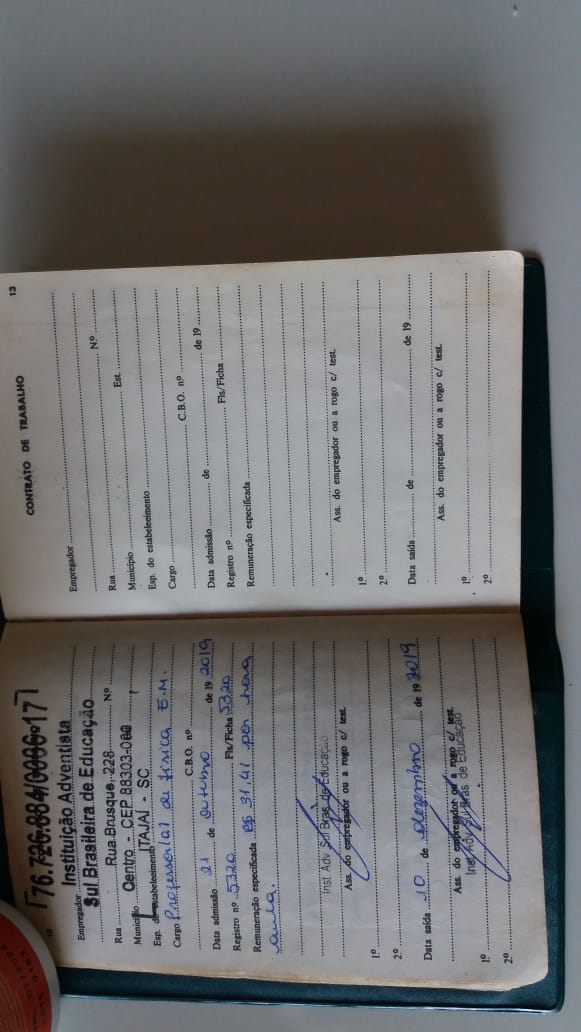 12
76.726.884/0006-17
Instituição Adventista
Empregador
Sul Brasileira de Educação
Rua Rua Brusque, 228 Nº
Município Centro - CEP 88303-000
ITAJAÍ - SC
Esp. do estabelecimento
Cargo Professor(a) de Física E.M.
C.B.O. nº
Data admissão 21 de outubro de 19 2019
Registro nº 5320 Fls/Ficha 5320
Remuneração especificada R$ 31,41 por hora
aula.
Inst. Adv. Sul Bras. de Educação
Ass. do empregador ou a rogo c/ test.
1º
2º
Data saída 10 de dezembro de 19 2019
Ass. do empregador ou a rogo c/ test.
Inst. Adv. Sul Bras. de Educação
1º
2º
13
CONTRATO DE TRABALHO
Empregador
Nº
Rua
Município Est.
Esp. do estabelecimento
Cargo
C.B.O. nº
Data admissão de de 19
Registro nº Fls/Ficha
Remuneração especificada
Ass. do empregador ou a rogo c/ test.
1º
2º
Data saída de de 19
Ass. do empregador ou a rogo c/ test.
1º
2º